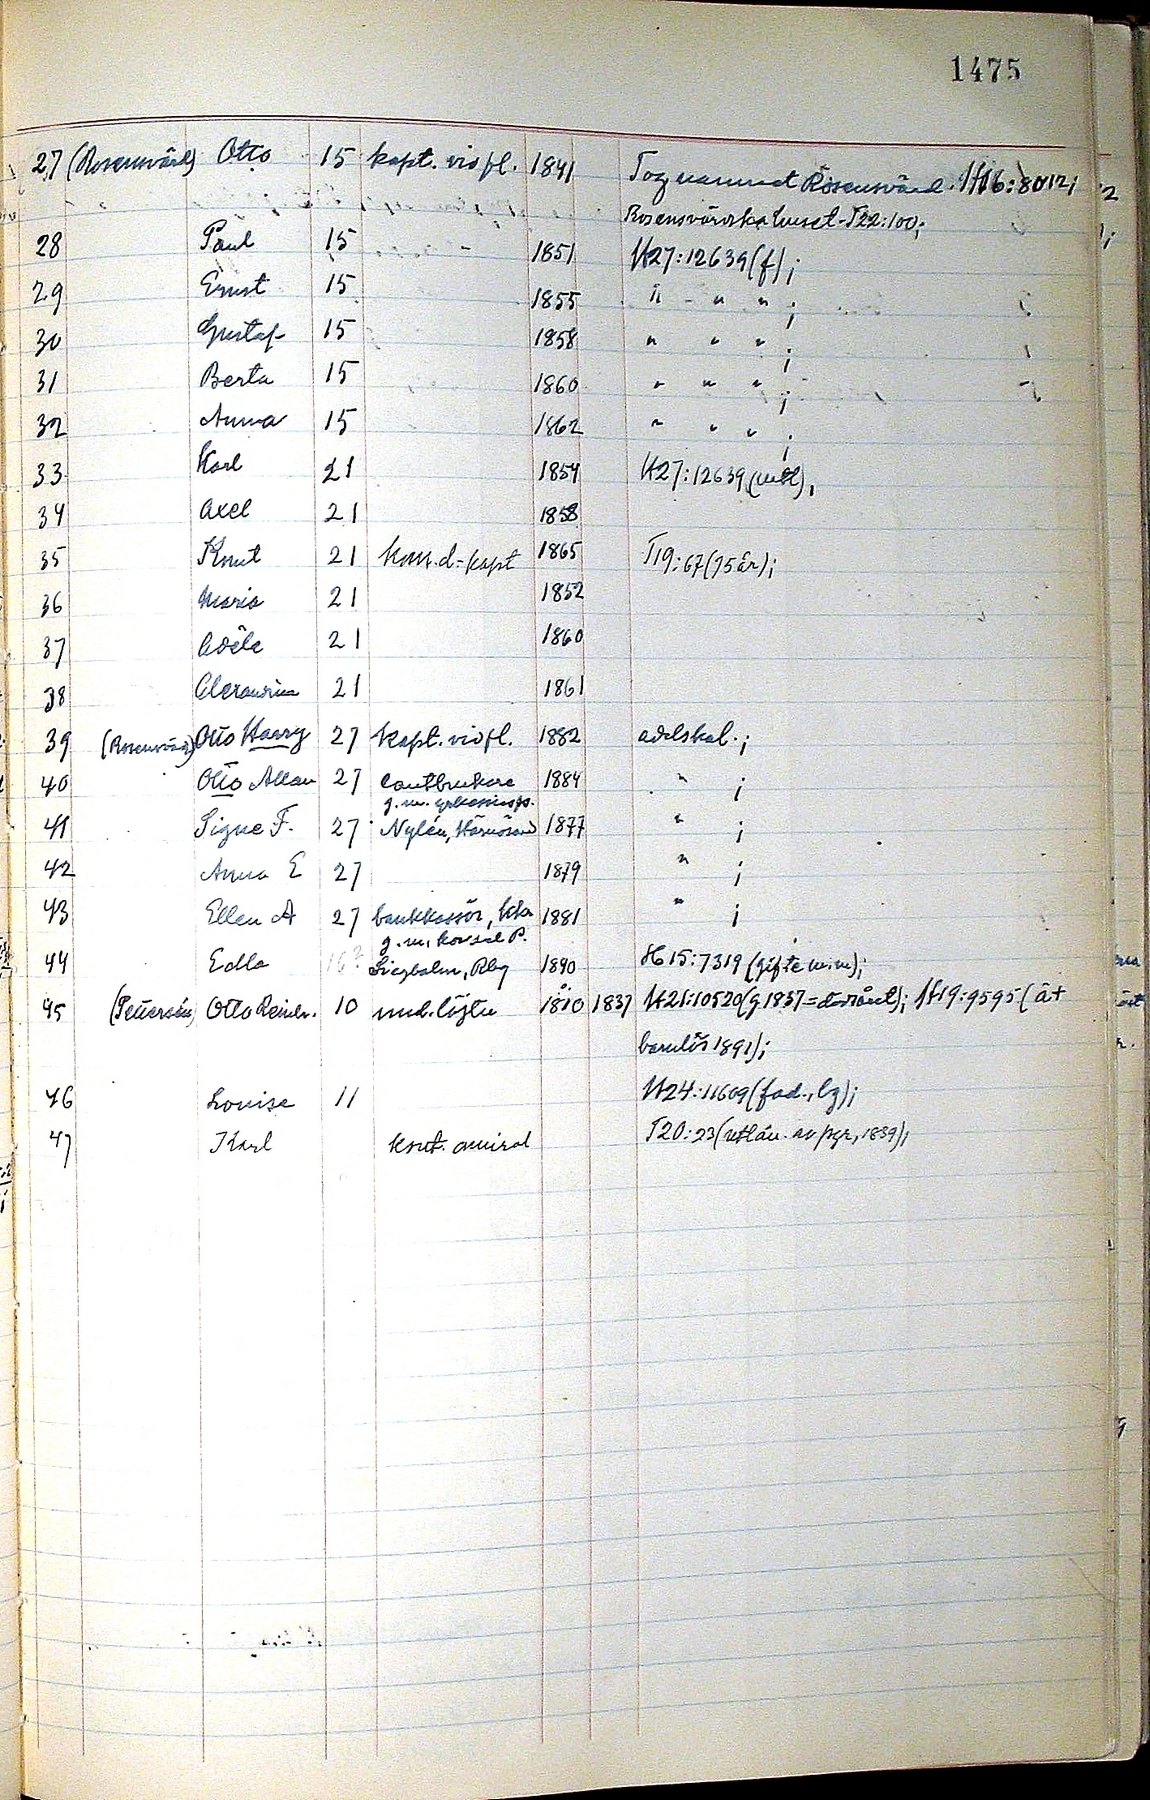 1475
27 (Rosensvärd) Otto 15 kapt. vid fl. 1841 Tog namnet Rosensvärd. H16:8012;
Rosensvärdska huset - T22:100;
28 Paul 15 1851 H27:12639 (f);
29 Ernst 15 1855 " " " ;
30 Gustaf 15 1858 " " " ;
31 Berta 15 1860 " " " ;
32 Anna 15 1862 " " " ;
33 Karl 21 1854 H27:12639
34 Axel 21 1858
35 Knut 21 kom.d.=kapt 1865 T19:67 (75 år);
36 Maria 21 1852
37 Adèle 21 1860
38 Alexandrina 21 1861
39 (Rosensvärd) Otto Harry 27 kapt. vid fl. 1882 adelskal. ;
40 Otto Allan 27 lantbrukare 1884 " ;
g.m.
41 Signe F. 27 Nylén, Härnösand 1877 " ;
42 Anna E 27 1879 " ;
43 Ellen A 27 bankkassör, Kka 1881 " ;
g.m. konsul P.
44 Edla 16? Siegbahn, Rby 1890 H15:7319 (gifte m.m);
45 (Pettersén) Otto Reinh. 10 und. löjtn 1810 1837 H21:10520 (g 1837 = ); H19:9595 (ät
barnlös 1891);
46 Louise 11 H24:11609 (fad., bg);
47 Karl kont. amiral T20:23 (utlån. av pgr, 1839);